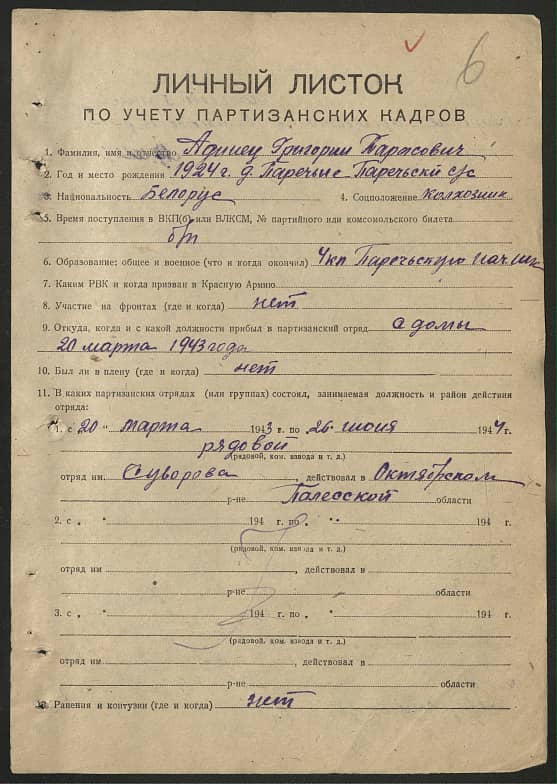 6
ЛИЧНЫЙ ЛИСТОК
ПО УЧЕТУ ПАРТИЗАНСКИХ КАДРОВ
1. Фамилия, имя и отчество Адинец Григорий Тарасович
2. Год и место рождения 1924 г. д. Паречье Паречьский с/с
3. Национальность Белорус 4. Соцположение колхозник
5. Время поступления в ВКП(б) или ВЛКСМ, № партийного или комсомольского билета
б/п
6. Образование: общее и военное (что и когда окончил) 4 кл Паречьскую нач. шк
7. Каким РВК и когда призван в Красную Армию
8. Участие на фронтах (где и когда) нет
9. Откуда, когда и с какой должности прибыл в партизанский отряд с домы
20 марта 1943 года
10. Был ли в плену (где и когда) нет
11. В каких партизанских отрядах (или группах) состоял, занимаемая должность и район действия
отряда:
1. с 20 " марта 1943 г. по 26 июня 1944 г.
рядовой
(рядовой, ком. взвода и т. д.)
отряд им Суворова, действовал в Октябрьском
р-не Палесской области
2. с " " 194 г. по " " 194 г.
(рядовой, ком. взвода и т. д.)
отряд им , действовал в
р-не области
3. с " " 194 г. по " " 194 г.
(рядовой, ком. взвода и т. д.)
отряд им , действовал в
р-не области
12. Ранения и контузии (где и когда) нет